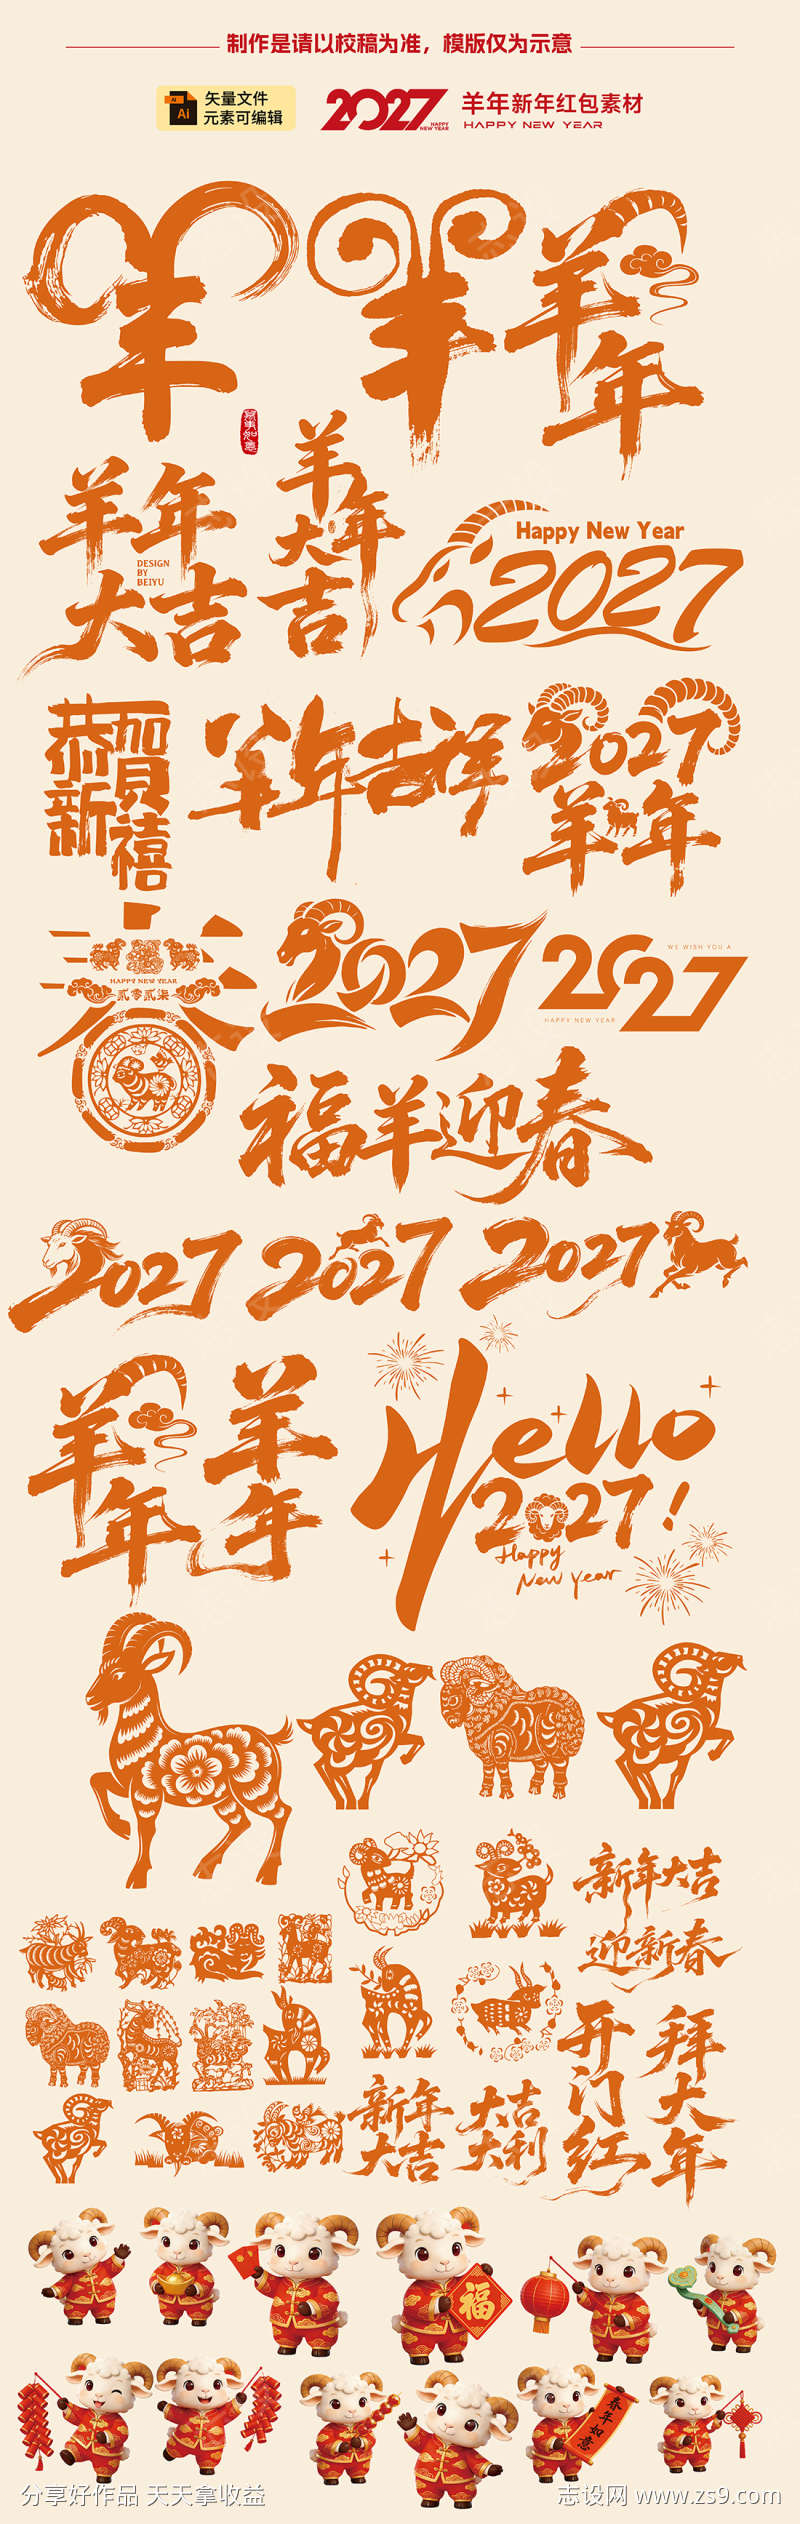 制作是请以校稿为准，模版仅为示意
Ai
Ai
矢量文件
元素可编辑
2027
HAPPY
NEW YEAR
羊年新年红包素材
HAPPY NEW YEAR
羊
羊
羊年
羊年
大吉
DESIGN
BY
BEIYU
羊年
大吉
Happy New Year
2027
恭賀
新禧
羊年吉祥
2027
羊年
春
HAPPY NEW YEAR
贰零贰柒
2027
2027
WE WISH YOU A
HAPPY NEW YEAR
福羊迎春
2027
2027
2027
羊年
羊年
Hello
2027!
Happy
New Year
新年大吉
迎新春
开门红
拜大年
新年
大吉
大吉
大利
福
春年如意
分享好作品 天天拿收益
志设网 www.zs9.com